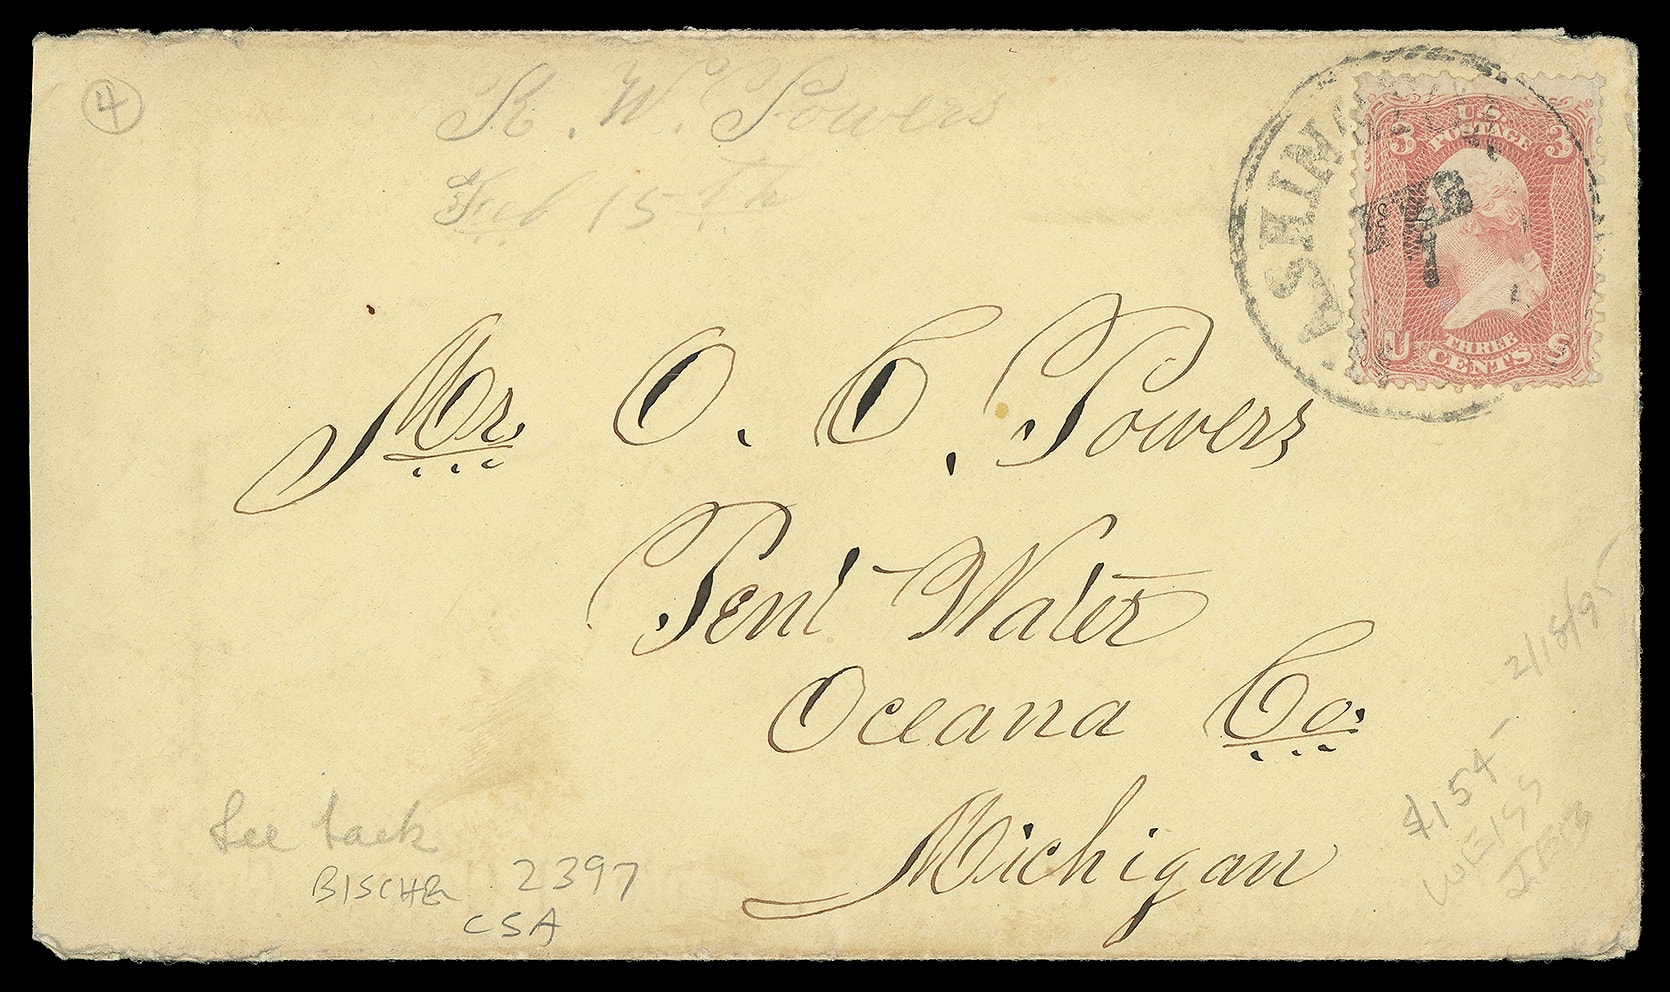 4
R. W. Powers
Feb 15th
WASHINGTON
FEB
1
U.S.
POSTAGE
3 3
THREE
CENTS
U S
Mr. O. C. Powers
Pent Water
Oceana Co.
Michigan
See back
BISCHEL 2397
CSA
$154 - 2/18/95
WEISS